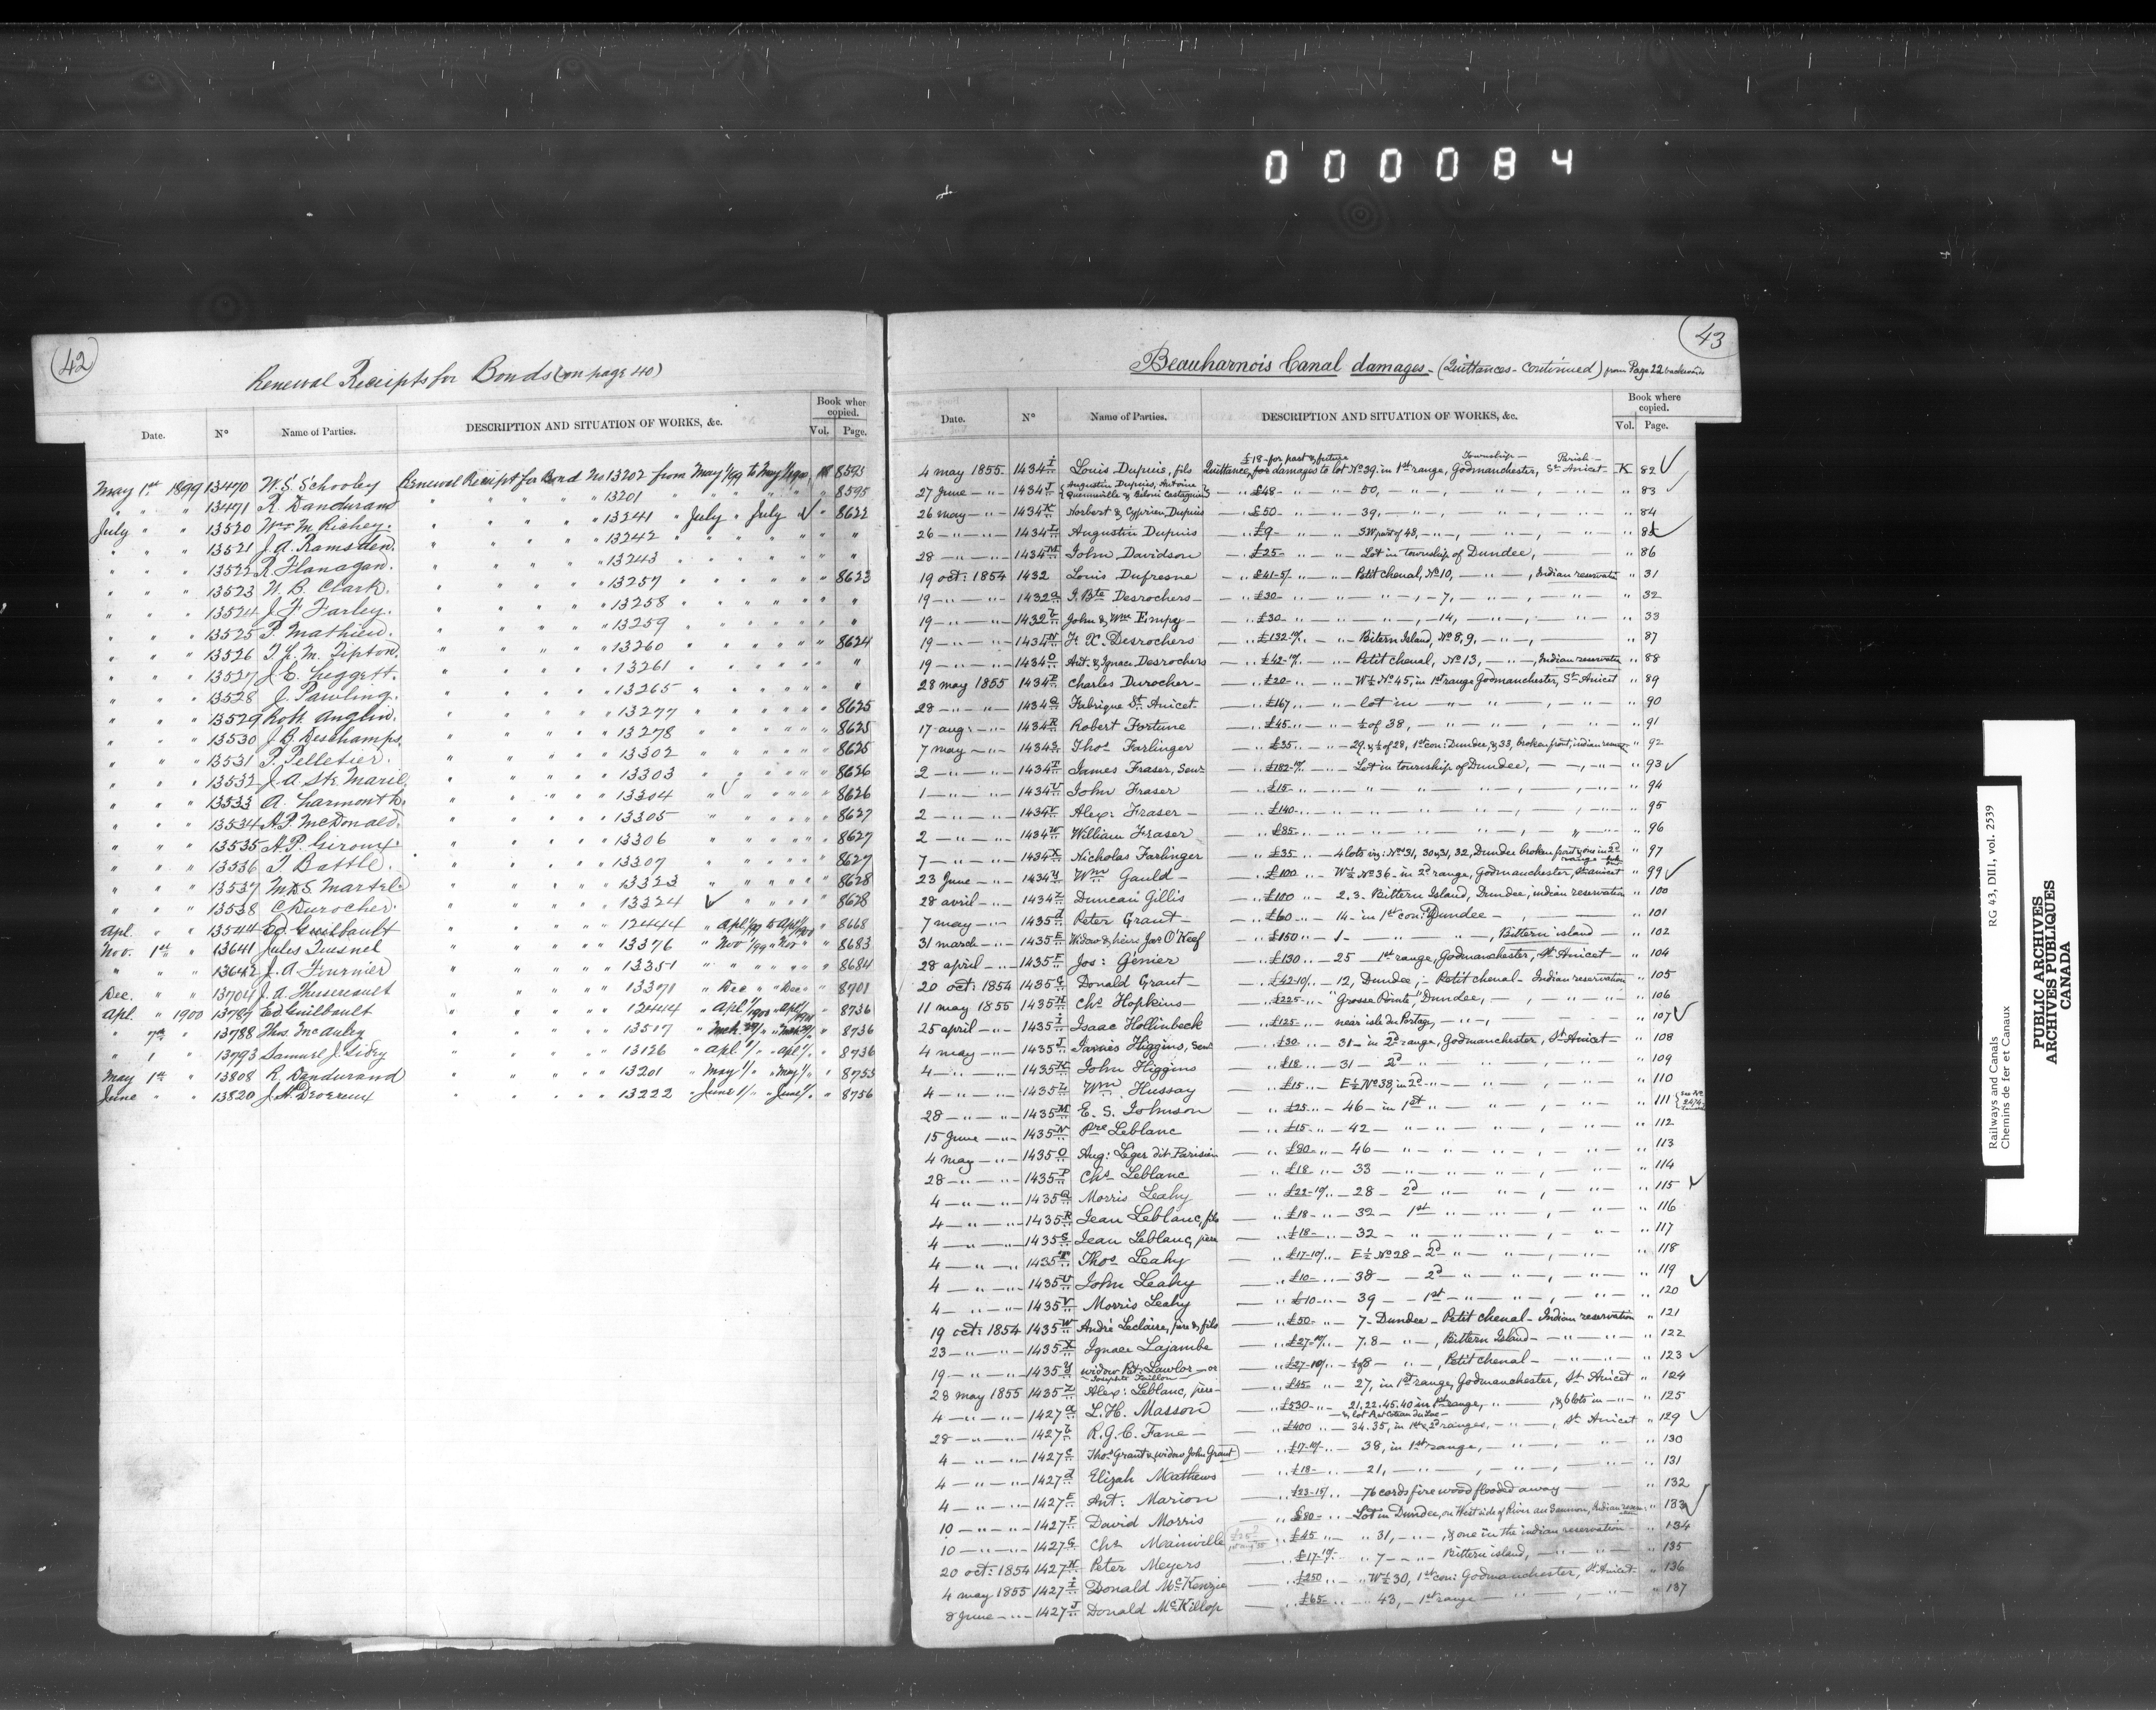 000084
42
Renewal Receipts for Bonds (on page 40)
Date. No Name of Parties. DESCRIPTION AND SITUATION OF WORKS, &c. Book where copied. Vol. Page.
May 1st 1899 13470 W. S. Schooley Renewal Receipt for Bond No 13202 from May 1/99 to May 1/1900 8595
" " " 13471 R. Dandurand " " " " 13201 " " " " " 8595
July " " 13520 Wm M. Richey. " " " " 13241 " July " July " 8622
" " " 13521 J. A. Ramsden. " " " " 13242 " " " " " "
" " " 13522 R. Flanagan. " " " " 13243 " " " " "
" " " 13523 W. B. Clark. " " " " 13257 " " " " " 8623
" " " 13524 J. F. Farley. " " " " 13258 " " " " " "
" " " 13525 P. Mathieu. " " " " 13259 " " " " "
" " " 13526 T. L. M. Tipton. " " " " 13260 " " " " " 8624
" " " 13527 J. C. Leggett. " " " " 13261 " " " " " "
" " " 13528 J. Pawling. " " " " 13265 " " " " " "
" " " 13529 Robt. Anglin. " " " " 13277 " " " " " 8625
" " " 13530 J. B. Deschamps. " " " " 13278 " " " " " 8625
" " " 13531 P. Pelletier. " " " " 13302 " " " " " 8625
" " " 13532 J. A. Ste Marie. " " " " 13303 " " " " " 8626
" " " 13533 A. Larmonth. " " " " 13304 " " " " " 8626
" " " 13534 A. P. McDonald. " " " " 13305 " " " " " 8627
" " " 13535 A. P. Giroux. " " " " 13306 " " " " " 8627
" " " 13536 T. Battle. " " " " 13307 " " " " " 8627
" " " 13537 Martel. " " " " 13323 " " " " " 8628
" " " 13538 C. Durocher. " " " " 13324 " " " " " 8628
Apl. " " 13544 Ed. Guilbault " " " " 12444 " Apl 1/99 to Apl 1/1900 " 8668
Nov. 1st " 13641 Jules Quesnel " " " " 13376 " Nov 1/99 " Nov " " 8683
" " " 13642 J. A. Fournier " " " " 13351 " " " " " 8684
Dec. " " 13704 J. A. Thusereault " " " " 13371 " Dec " " Dec " " 8701
Apl. " 1900 13787 Ed. Guilbault " " " " 12444 " Apl 1/1900 " Apl 1/1901 8736
" 7th " 13788 Thos. McAuley " " " " 13517 " Mch " " Mch " 8736
" 1 " 13793 Samuel J. Sidey " " " " 13126 " Apl 1/ " " Apl 1/ " 8736
May 1st " 13808 R. Dandurand " " " " 13201 " May 1/ " " May 1/ " 8755
June " " 13820 J. H. Devereux " " " " 13222 " June 1/ " " June 1/ " 8756
43
Beauharnois Canal damages - (Quittances - Continued) from Page 22 backwards
Date. No Name of Parties. DESCRIPTION AND SITUATION OF WORKS, &c. Book where copied. Vol. Page.
£18 - for past & future Township - Parish -
4 may 1855 1434 I Louis Dupuis, fils Quittance, for damages to lot No 39. in 1st range, Godmanchester, St Anicet - K 82
27 June - " - 1434 J Augustin Dupuis, Antoine Quenneville & Béloni Castagnier - " £48 - - 50, - " - , - " - " 83
26 may - " - 1434 K Norbert & Cyprien, Dupuis - " £50 - - 39, - " - , - " - " 84
26 - " - " - 1434 L Augustin Dupuis - " £9 - " - S.W part of 48, - " - , - " - " 85
28 - " - " - 1434 M John Davidson - " £25 - " - Lot in township of Dundee, - " 86
19 oct: 1854 1432 Louis Dufresne - " £41-5/ " - Petit chenal, No 10, - " - , Indian reservation " 31
19 - " - " - 1432 a J. Bte Desrochers - - " £30 - " - " - , - 7, - " - , - " - " 32
19 - " - " - 1432 b John & Wm Empey - - " £30 - " - " - , 14, - " - , - " - " 33
19 - " - " - 1434 N F. X. Desrochers - " £132-10/ - " - Bitern Island, No 8, 9, - " - , " 87
19 - " - " - 1434 O Ant. & Ignace, Desrochers - " £42-10/ - " - Petit chenal, No 13, - " - , Indian reservation " 88
28 may 1855 1434 P Charles Durocher - - " £20 - " - W½ No 45, in 1st range Godmanchester, St Anicet " 89
28 - " - " - 1434 Q Fabrique St Anicet - " £167 - " - lot in - " - " - , - " - " 90
17 aug: - " - 1434 R Robert Fortune - " £45 - " - ½ of 38, - " - " - , - " - " 91
7 may - " - 1434 S Thos Farlinger - " £35 - " - 29. & ½ of 28, 1st con: Dundee, & 33, broken front, indian reserve " 92
2 - " - " - 1434 T James Fraser, Senr - " £182-10/ - " - Lot in township of Dundee, - " - , - " - " 93
1 - " - " - 1434 U John Fraser - " £15 - " - " - " - " - , - " - " 94
2 - " - " - 1434 V Alex: Fraser - - " £140 - " - " - " - " - , - " - " 95
2 - " - " - 1434 W William Fraser - " £85 - " - " - " - " - , - " - " 96
7 - " - " - 1434 X Nicholas Farlinger - " £35 - 4 lots in: Nos 31, 30 & 31, 32, Dundee broken front, & one in 2d range " 97
23 June - " - 1434 Y Wm Gauld - - " £100 - " - W½ No 36 - in 2d range, Godmanchester, St anicet " 99
28 avril - " - 1434 Z Duncan Gillis - " £100 - " - 2. 3 - Bittern Island, Dundee, indian reservation " 100
7 may - " - 1435 d Peter Grant - - " £60 - " - 14 - in 1st con: Dundee - , - " 101
31 march - " - 1435 E Widow & heirs Jas O'Keef - " £150 - " - 1 - " - " - , Bittern island - " 102
28 april - " - 1435 F Jos: Génier - " £130 - " - 25 - 1st range, Godmanchester, St Anicet - " 104
20 oct: 1854 1435 G Donald Grant - - " £42-10/ - " - 12, Dundee, - Petit chenal - Indian reservation " 105
11 may 1855 1435 H Chs Hopkins - - " £225 - " - "Grosse Pointe", Dundee, - , - " - " 106
25 april - " - 1435 I Isaac Hollinbeck - " £125 - " - near isle du Portage, - " - , " 107
4 may - " - 1435 J James Higgins, Senr - " £30 - " - 31 - in 2d range, Godmanchester, St Anicet - " 108
4 - " - " - 1435 K John Higgins - " £18 - " - 31 - 2d - " - " - , - " - " 109
4 - " - " - 1435 L Wm Hussay - " £15 - " - E½ No 38, in 2d - " - " - , - " - " 110
28 - " - " - 1435 M E. S. Johnson - " £25 - " - 46 - in 1st - " - " - , - " - " 111
15 June - " - 1435 N Pre Leblanc - " £15 - " - 42 - " - " - " - , - " - " 112
4 may - " - 1435 O Aug: Léger dit Parisien - " £80 - " - 46 - " - " - " - , - " - " 113
28 - " - " - 1435 P Chs Leblanc - " £18 - " - 33 - " - " - " - , - " - " 114
4 - " - " - 1435 Q Morris Leahy - " £22-10/ - " - 28 - 2d - " - " - , - " - " 115
4 - " - " - 1435 R Jean Leblanc, fils - " £18 - " - 32 - 1st - " - " - , - " - " 116
4 - " - " - 1435 S Jean Leblanc, père - " £18 - " - 32 - " - " - " - , - " - " 117
4 - " - " - 1435 T Thos Leahy - " £17-10/ - " - E½ No 28 - 2d - " - " - , - " - " 118
4 - " - " - 1435 U John Leahy - " £10 - " - 38 - 2d - " - " - , - " - " 119
4 - " - " - 1435 V Morris Leahy - " £10 - " - 39 - 1st - " - " - , - " - " 120
19 oct: 1854 1435 W André Leclaire, père & fils - " £50 - " - 7 - Dundee - Petit chenal - Indian reservation " 121
23 - " - " - 1435 X Ignace Lajambe - " £27-10/ - " - 7. 8 - " - , Bittern Island - " - " - " 122
19 - " - " - 1435 Y widow Pat: Lawlor - or Josephte Taillon - " £27-10/ - " - ½ of 8 - " - , Petit chenal - " - " - " 123
28 may 1855 1435 Z Alex: Leblanc, père - - " £45 - " - 27, in 1st range, Godmanchester, St Anicet " 124
4 - " - " - 1427 a L. H. Masson - " £530 - " - 21. 22. 45. 40 in 1st range, " - , & 6 lots in - " - & lot A at Coteau du Lac - " 125
28 - " - " - 1427 b R. G. C. Fane - - " £400 - " - 34. 35, in 1st & 2d ranges, - " - , St Anicet " 129
4 - " - " - 1427 c Thos Grant & widow John Grant - " £17-10/ - " - 38, in 1st range, - " - , - " - " 130
4 - " - " - 1427 d Elizah Mathews - " £18 - " - 21, - " - , - " - , - " - " 131
4 - " - " - 1427 E Ant: Marion - " £23-15/ - " - 76 cords fire wood flooded away - " 132
10 - " - " - 1427 F David Morris - " £80 - " - Lot in Dundee, on West side of River au Saumon, Indian reserv: " 133
10 - " - " - 1427 G Chs Mainville - " £45 - " - 31, - " - , & one in the indian reservation - " 134
20 oct: 1854 1427 H Peter Meyers - " £17-10/ - " - 7 - " - Bittern island, - " - " - " 135
4 may 1855 1427 I Donald McKenzie - " £250 - " - W½ 30, 1st con: Godmanchester, St Anicet - " 136
8 June - " - 1427 J Donald McKillop - " £65 - " - 43, - 1st range - " - , - " - " 137
Railways and Canals RG 43, DIII, vol. 2539
Chemins de fer et Canaux
PUBLIC ARCHIVES
ARCHIVES PUBLIQUES
CANADA